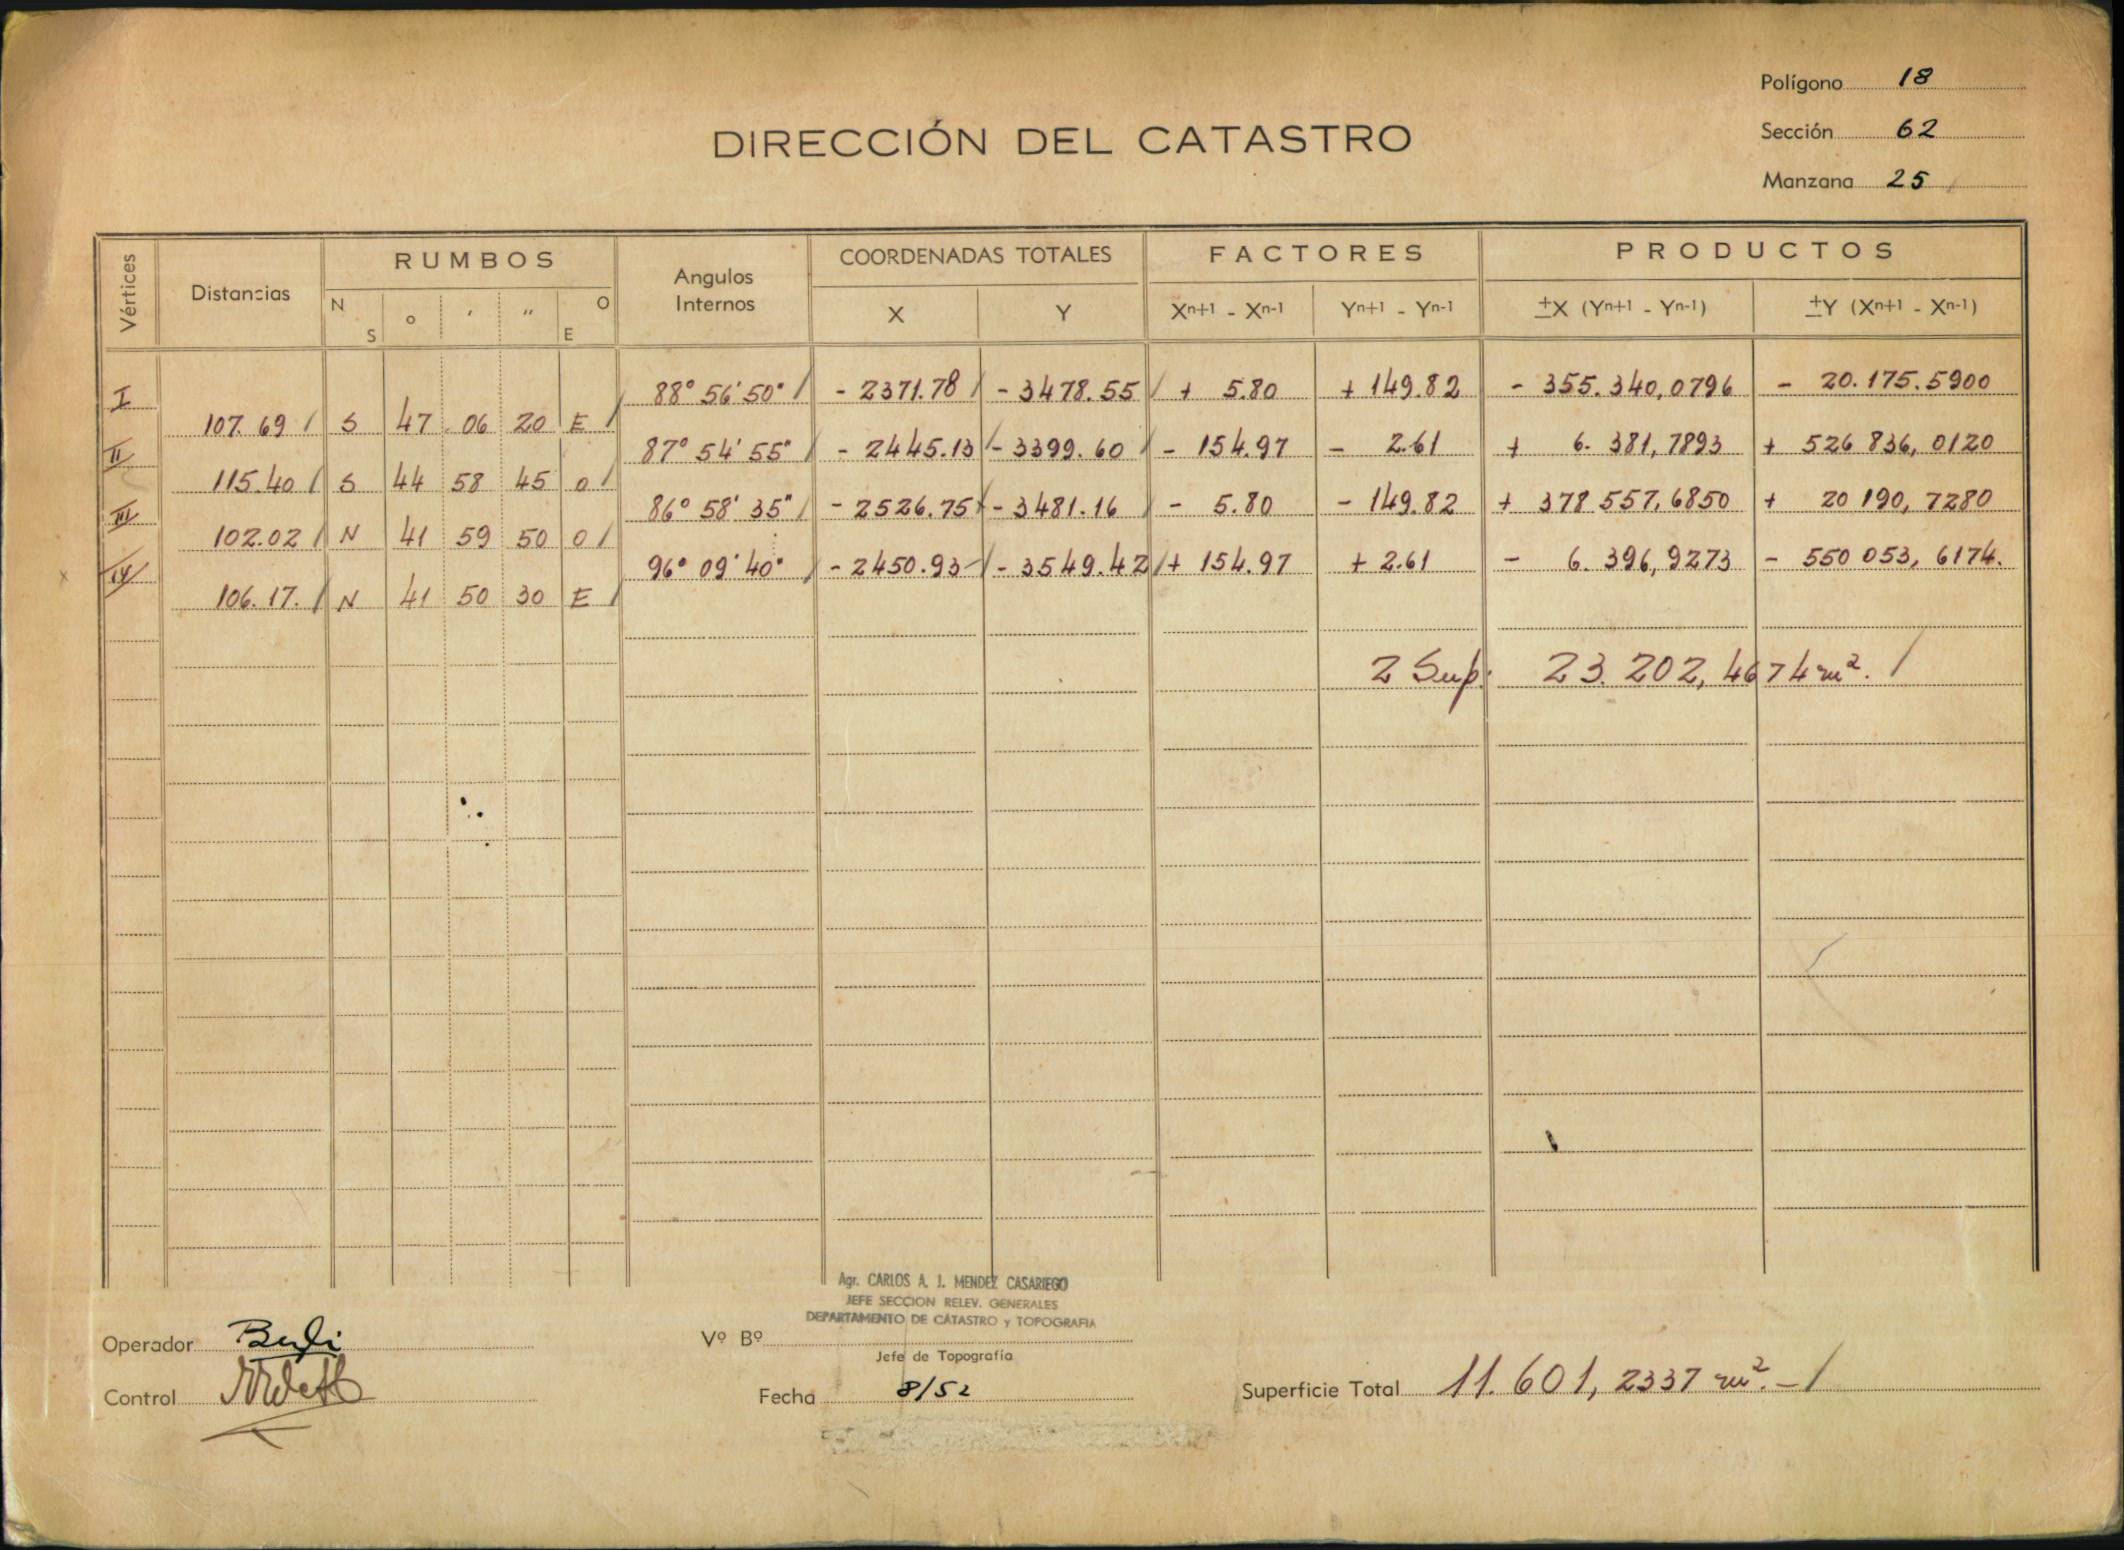 Polígono 18
DIRECCIÓN DEL CATASTRO
Sección 62
Manzana 25
Vértices Distancias RUMBOS Angulos Internos COORDENADAS TOTALES FACTORES PRODUCTOS
N S ° ' " O E X Y Xn+1 - Xn-1 Yn+1 - Yn-1 ±X (Yn+1 - Yn-1) ±Y (Xn+1 - Xn-1)
I 88° 56' 50" - 2371.78 - 3478.55 + 5.80 + 149.82 - 355.340,0796 - 20.175.5900
107.69 S 47 06 20 E
II 87° 54' 55" - 2445.13 - 3399.60 - 154.97 - 2.61 + 6.381,7893 + 526 836,0120
115.40 S 44 58 45 O
III 86° 58' 35" - 2526.75 - 3481.16 - 5.80 - 149.82 + 378 557,6850 + 20 190,7280
102.02 N 41 59 50 O
IV 96° 09' 40" - 2450.93 - 3549.42 + 154.97 + 2.61 - 6.396,9273 - 550 053,6174.
106.17. N 41 50 30 E
2 Sup: 23.202,4674 m².
Agr. CARLOS A. J. MENDEZ CASARIEGO
JEFE SECCION RELEV. GENERALES
DEPARTAMENTO DE CATASTRO y TOPOGRAFIA
Operador
Vº Bº
Jefe de Topografía
Control
Fecha 8/52
Superficie Total 11.601,2337 m².-